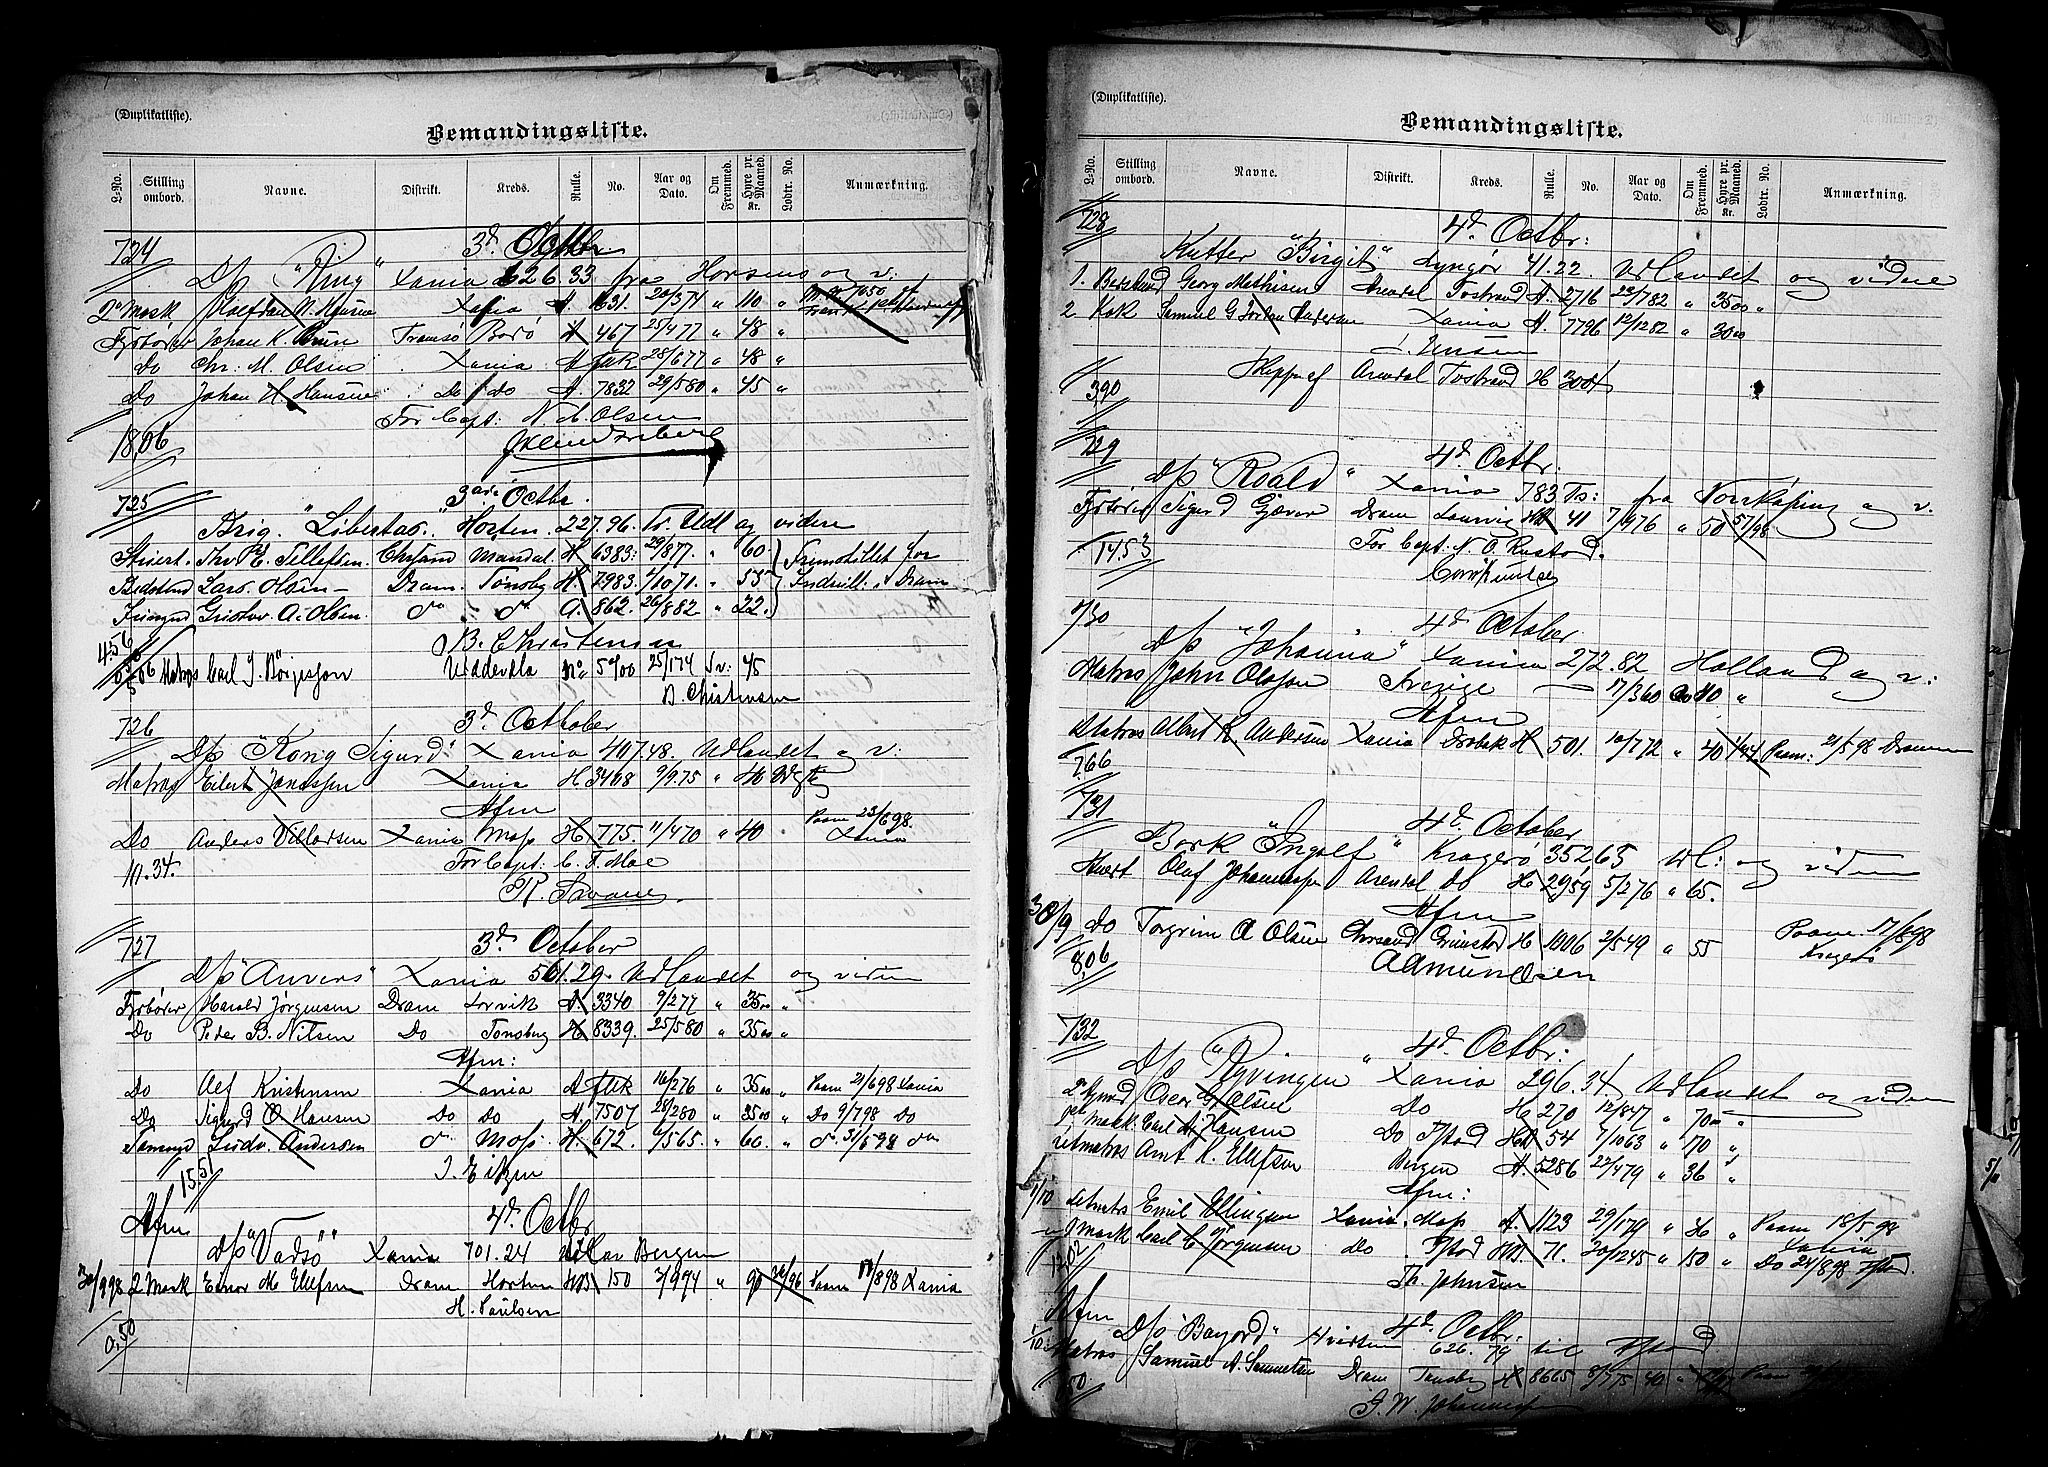 (Duplikatliste).
Bemandingsliste.
L-No. Stilling ombord. Navne. Distrikt. Kreds. Rulle. No. Aar og Dato. Om Fremmed. Hyre pr. Maaned. Kr. Lodtr. No. Anmærkning.
724 3d Octbr.
D/s "Ring" Xania 626.33 fra Horsens og v:
2d Mask Xania A 631 20/3 74 " 110 "
Fyrbøter Johan K. Tromsø Borø A 467 25/4 77 " 48 "
Do Chr. M. Olsen Xania A 28/6 77 " 48 "
Do Johan H. Hansen Do Do A. 7832 29/5 80 " 45 "
For Capt: N. A. Olsen
18,06
725 3die Octbr.
Brig. "Libertas." Horten 227.96. Tr. Udl og videre
Stuert. Thv. E. Tellefsen Chrsand Mandal H 6383: 29/8 77. " 60.
Lars Olsen Dram. Tønsbg H. 2983. 1/10 71. " 55
Gustav A. Olsen do do A. 862. 26/8 82 " 22.
4.56 B. Christensen
Matros Carl J. Börgesson Uddevalla No 5400 25/1 74 Sv: 45
B. Christensen
726 3d October
D/s "Kong Sigurd" Xania 407.48. Udlandet og v:
Matros Eilert Xania H 3468 9/9 75 "
Afm
Do Anders Xania Moss H 775. 11/4 70 " 40 " Paam 23/6 98.
11.34. For Capt: C. F. Moe
R. Swane
727 3d October
D/s "Anvers" Xania 561.29. Udlandet og viden
Fyrbøter Harald Jørgensen Dram Larvik A 3340 9/2 77 " 35 00 "
Do Peder B. Nilsen Do Tønsberg H 8339. 25/5 80 " 35 00 "
Afm:
Do Alf Kristensen Xania A 16/2 76 " 35 00 " Paam 21/6 98 Xania
Do Sigurd O Hansen Do Do A. 7507 28/2 80 " 35 00 " Do 9/7 98 Do
Ludv. Andersen do Moss H. 672. 6/5 65. " 60. " do 31/5 98 do
15.51 J. Eitzen
Afm 4d. Octbr
D/s "Vadsø" Xania 701.24 Bergen
30/9 98 2 Mask Einar M. Ellefsen Dram Horten HB 150 3/9 94 " 90 Paam 17/8 98 Xania
H. Paulsen
0.50
(Duplikatliste).
Bemandingsliste.
L-No. Stilling ombord. Navne. Distrikt. Kreds. Rulle. No. Aar og Dato. Om Fremmed. Hyre pr. Maaned. Kr. Lodtr. No. Anmærkning.
728 4d Octbr:
Kutter "Birgit" Lyngør 41.22. Udlandet og videre
1. Georg Mathisen Arendal Tvstrand A. 2716 22/7 82 " 35 00 "
2 Kok Samuel G Andersen Xania A. 7796 12/12 82 " 30 00
J. Jensen
Skipper af Arendal Tvstrand H 3004
3,90
729 4d. Octbr.
D/s "Roald" Xania 783 Ts: fra Norrköping og v.
Fyrbøter Sigurd Gjæver Dram Laurvig 41 7/9 76 " 50 57/98
14.53 For Capt: N. O. Rustad.
730 4d October
D/s "Johanna" Xania 272.82 Holland og v:
Matros John Olsson Sverige — 17/3 60 40 "
Afm
Matros Albert K. Andersen Xania Drøbak H 501. 10/7 72 " 40 Paam: 21/5 98 Drammen
7.66
731 4d. October
Bark "Ingolf" Kragerø 352 65 Udl: og viden
Stuert Olaf Johannessen Arendal Do H 2959 5/2 76 " 65.
Afm
30/9 Do Torgrim A Olsen Chrsand Grimstad H 1006 2/5 49 " 55 Paam 17/8 98 Kragerø
8.06 Admundsen
732 4d. Octbr:
D/s "Ryvingen" Xania 296.34 Udlandet og viden
2d Oscar G. Olsen Do H 270 12/8 47 " 70 00 "
Mask. Carl A. Hansen Do Fstad 54 7/10 63 " 70 "
Letmatros Arnt K. Ellefsen Bergen A. 5286 22/4 79 " 36 "
Afm:
1/10 Letmatros Emil Ellingsen Xania Moss A. 1123 29/1 79 " 36 " Paam 18/5 98 Xania
Mask Carl C. Jørgensen do. Fstad 71. 20/12 45 " 150 " Do 24/8 98 Fstad.
12.02 Th. Johnsen
Afm 4d. Octbr:
D/s 626.79 til Fstad
1/10 Matros Samuel A. Dram Tønsberg H 8665 40 " Paam
S. W. Johannessen